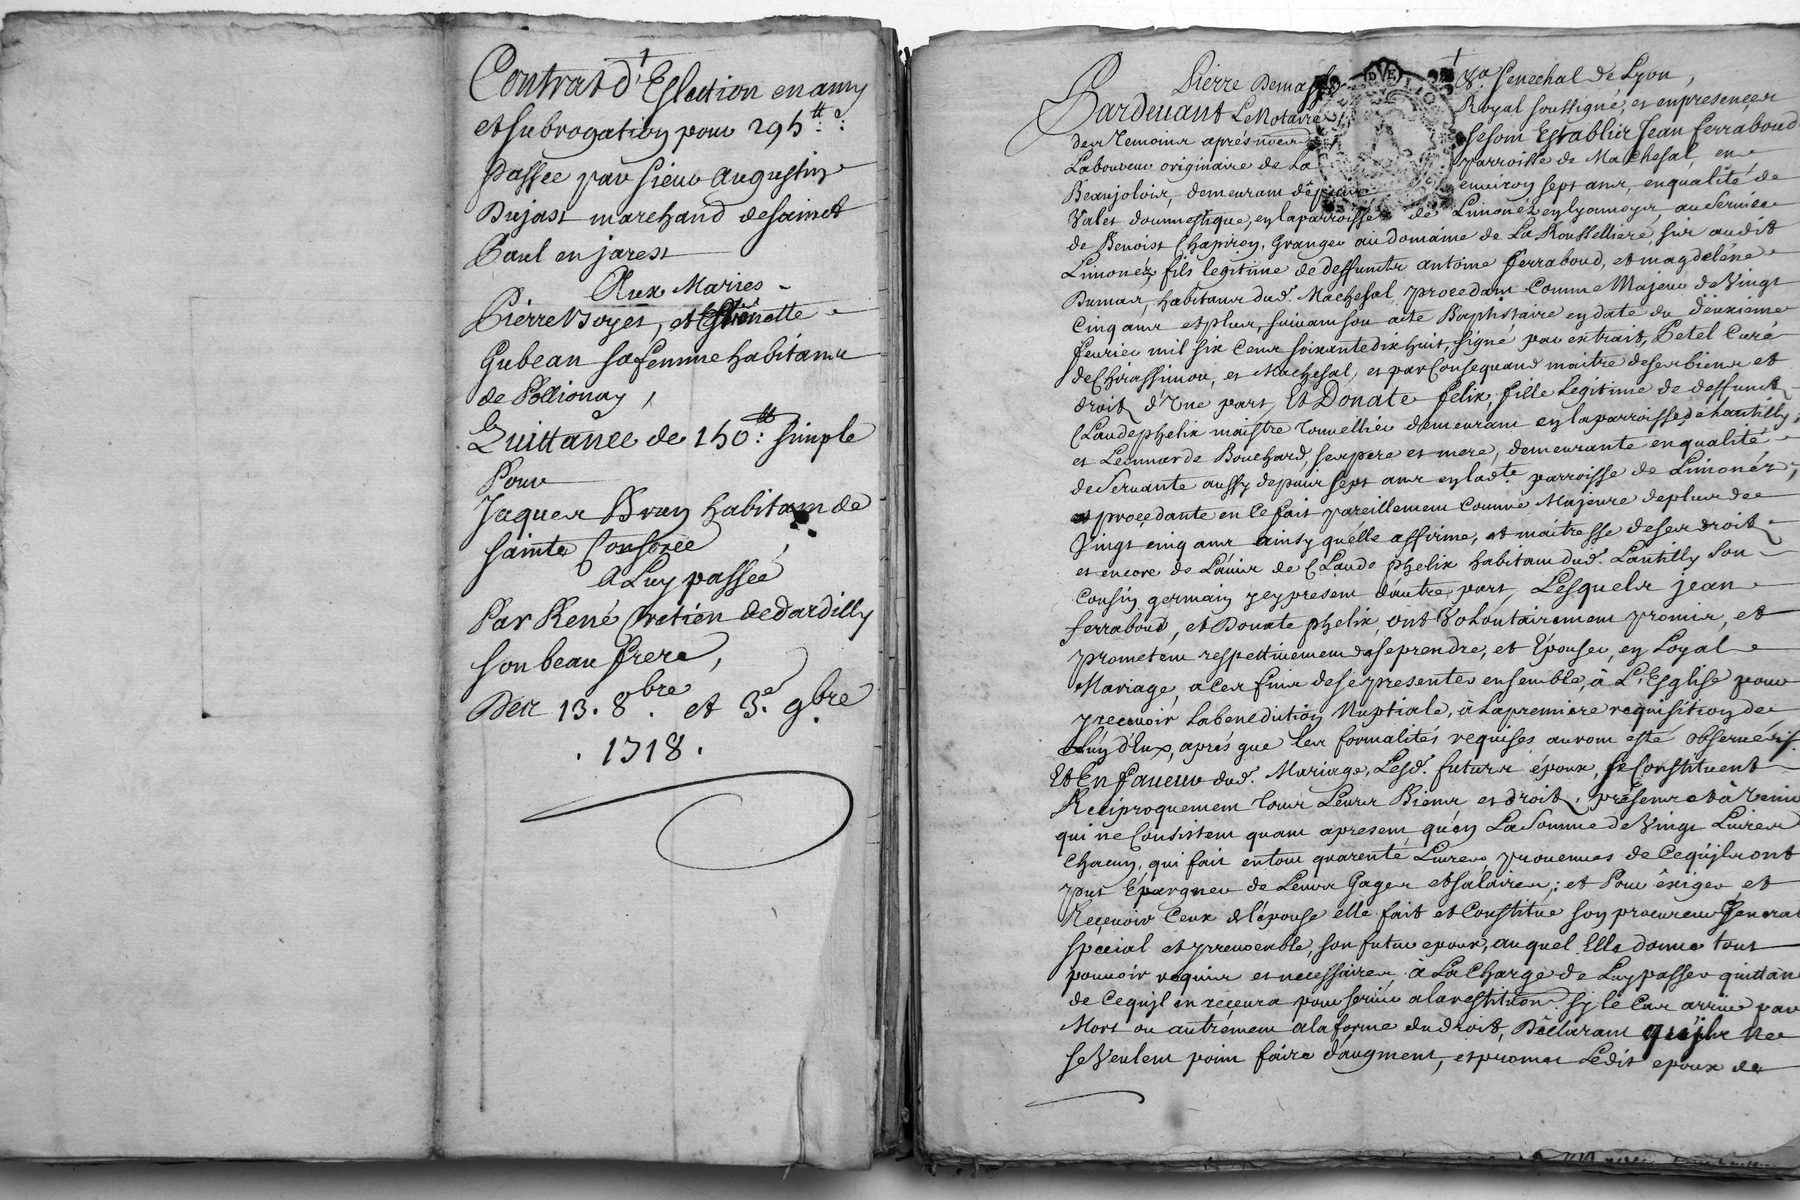 Contrat d'Eslection en amy
et subrogation pour 295 ₶:
Passée par Sieur Augustin
Dujast marchand de Sainct
Paul en jarest
Aux Mariés
Pierre Voyet, et Estienette
Gubean sa femme habitans
de Pollionay,
Quittance de 150 ₶: simple
Pour
Jaques Brun habitam de
Sainte Consorce
A Luy passée
Par René Cretien de dardilly
Son beau frere,
Des 13. 8bre. et 3e. 9bre
. 1718 .
Pierre Dema
Pardevant Le Notaire
des Temoins après nommés
Laboureur originaire de La
Beaujolois, demeurant depuis
Valet doumestique, en la parroisse de Limonéz en lyonnoys, au Service
de Benoist Chapiron, Granger au domaine de La Rousselliere, sur audit
Limonéz, fils legitime de deffuncts antoine ferraboud, et magdeléne
Dumas, habitans dud. Machesal, procedant Comme Majeur de Vingt
Cinq ans et plus, suivant son acte Baptistaire en date du deuxieme
feurier mil six Cens soixante dix huit, signé par extrait, Petel Curé
de Chirassimon, et Machesal, et par Consequand maitre de ses biens et
droits d'Une part, Et Donate felix, fille Legitime de deffunct
Claude phelix maistre Tonnellier demeurant en la parroisse de Lantilly,
et Leonnarde Bouchard, ses pere et mere, demeurante en qualité
de Servante aussy depuis sept ans en lad.te parroisse de Limonéz,
et proçedante en Ce fait pareillement Comme Majeure de plus de
Vingt cinq ans ainsy qu'élle affirme, et maitresse de ses droits
et encore de L'avis de Claude phelix habitant dud. Lantilly Son
Cousin germain y present d'autre part, Lesquels jean
ferraboud, et Donate phelix, ont Volontairement promis, et
prometent respettivement de se prendre, et Epouser, en Loyal
Mariage, a Ces fins de se presenter ensemble, à L'Esglise pour
y recevoir La benediction Nuptiale, à La premiere requisition de
L'un d'Eux, aprés que les formalités requises auront esté observées,
Et En faveur dud. Mariage, Lesd. futurs époux, se Constituent
Reciproquement Tous Leurs Biens et droits, présens et à Venir
qui ne Consistent quant apresent qu'en La Somme de Vingt Livres
Chacun, qui fait en tout quarente Livres, provenues de Ce qu'ils ont
put Epargner de Leurs Gages et salaires; et Pour exiger et
Reçevoir Ceux de l'épouse elle fait et Constitue son procureur General
special et irrevocable, son futur epoux, auquel Elle donne tout
pouvoir requis et necessaires à La Charge de Luy passer quittan
de Ce qu'il en reçevra pour servir a la restitution sy le Cas arrive par
Mort ou autrement a la forme du droit, Déclarant qu'ils Ne
se Veulent point faire d'augment, et promet Ledit epoux de
Sa. Senechal de Lyon,
Royal soussigné, et en presence
Se sont Establis Jean ferraboud
parroisse de Machesal, en
environ sept ans, en qualité de